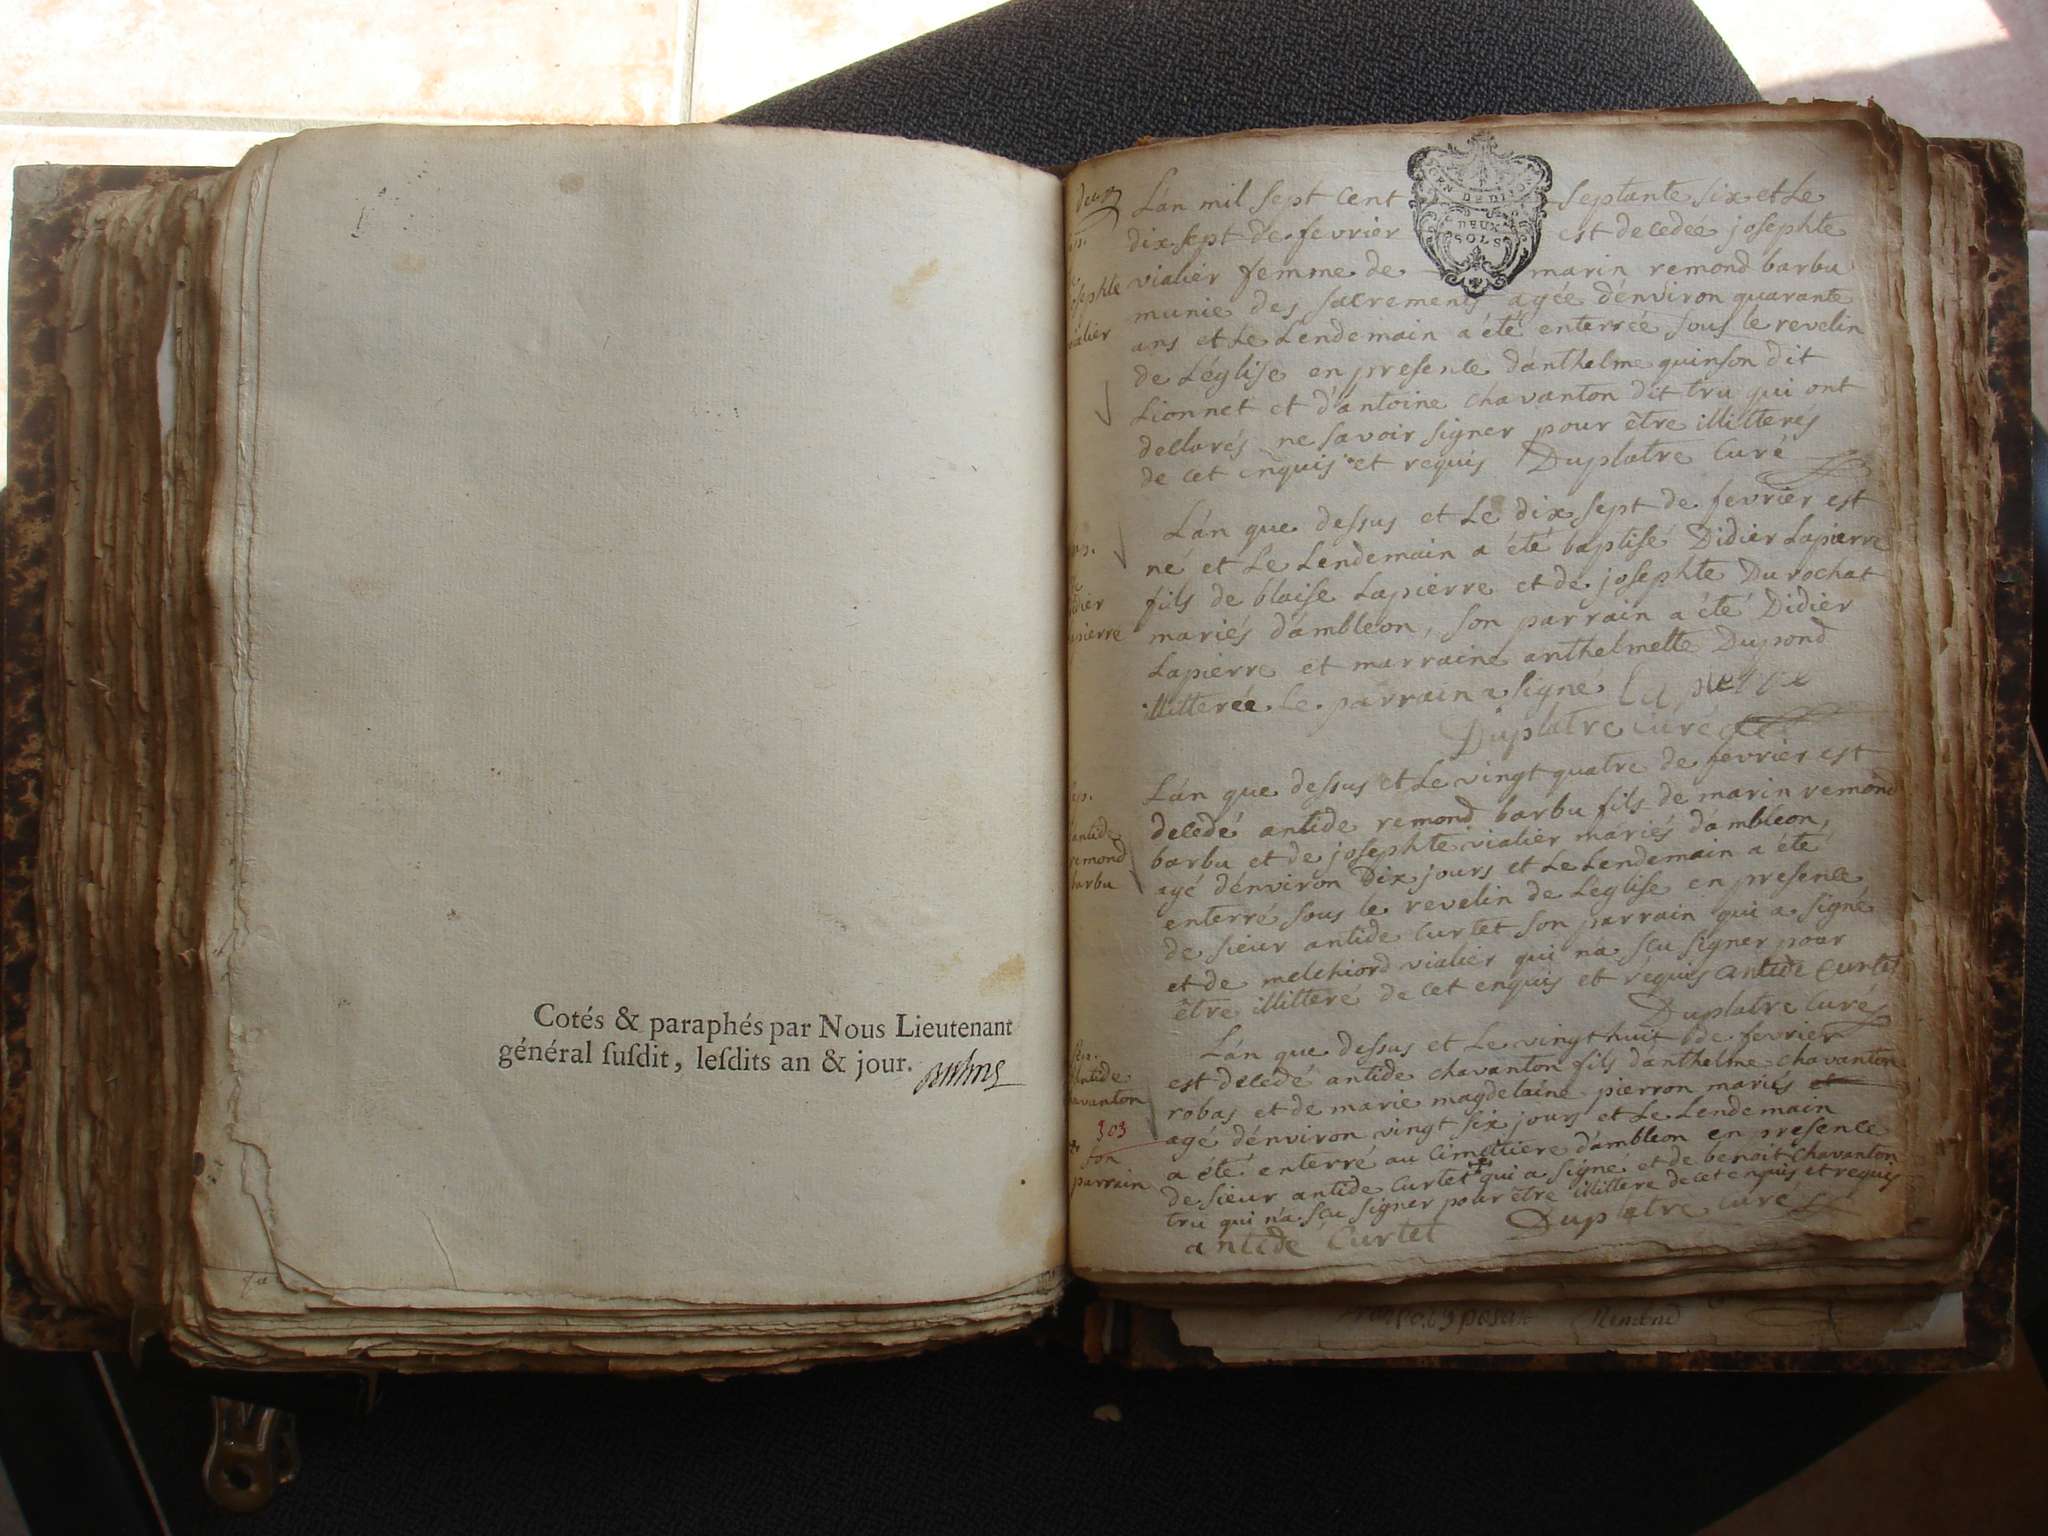 Cotés & paraphés par Nous Lieutenant
général susdit, lesdits an & jour.
deux
L'an mil sept cent septante six et le
GEN DE DIJON
DEUX
SOLS
dix sept de fevrier est decedée josephte
vialier femme de marin remond barbu
munie des sacrements agée d'environ quarante
ans et Le Lendemain a été enterrée sous le revelin
de L'église en presence d'anthelme quinson dit
Lionnet et d'antoine chavanton dit tru qui ont
declarés ne savoir signer pour être illitterés
de cet enquis et requis Duplatre Curé
L'an que dessus et Le dix sept de fevrier est
né et Le Lendemain a été baptisé Didier Lapierre
fils de blaise Lapierre et de josephte Durochat
mariés d'ambleon, son parrain a été Didier
Lapierre et marraine anthelmette Dupond
illitterée le parrain a signé
Duplatre curé
L'an que dessus et Le vingt quatre de fevrier est
decedé antide remond barbu fils de marin remond
barbu et de josephte vialier mariés d'ambleon,
agé d'environ Dix jours et Le Lendemain a été
enterré sous le revelin de L'eglise en presence
de sieur antide Curtet son parrain qui a signé
et de melchiord vialier qui na scu signer pour
être illitteré de cet enquis et requis antide Curtet
Duplatre Curé
L'an que dessus et Le vingt huit de fevrier
est decedé antide chavanton fils d'anthelme chavanton
robas et de marie magdelaine pierron mariés et
agé d'environ vingt six jours et Le Lendemain
a été enterré au cimettiere d'ambleon en presence
de sieur antide Curtet + qui a signé et de benoit chavanton
tru qui n'a scu signer pour être illittere de cet enquis et requis
antide Curtet Duplatre Curé
josephte
vialier
antide
remond
barbu
antide
chavanton
303
+ son
parrain